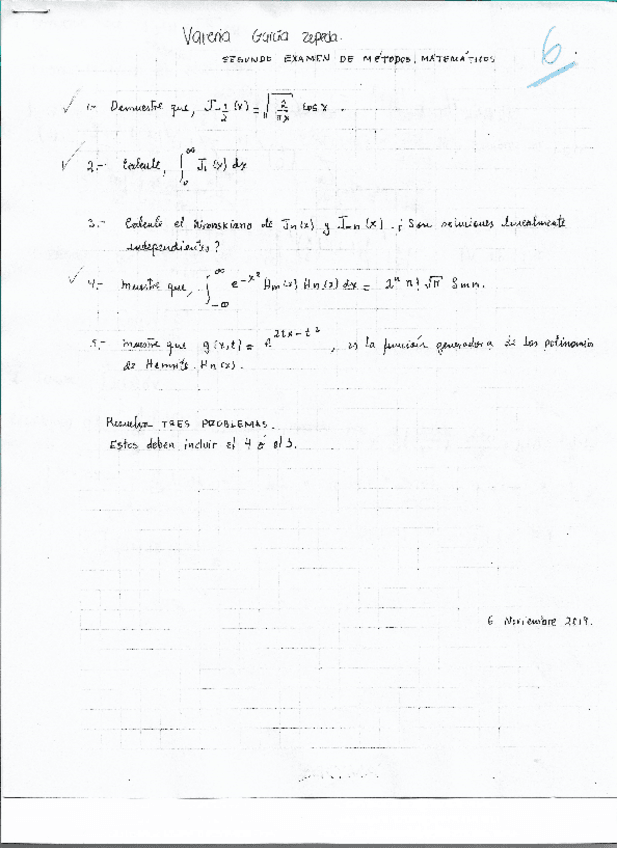 Valeria García Zepeda.
SEGUNDO EXAMEN DE MÉTODOS MATEMÁTICOS
6
1.- Demuestre que, J_{-1/2}(x) = √(2/πx) cos x.
2.- Calcule, ∫_0^∞ J_1(x) dx
3.- Calcule el Wronskiano de J_n(x) y J_{-n}(x). ¿Son soluciones linealmente
independientes?
4.- Muestre que, ∫_{-∞}^{∞} e^{-x²} H_m(x) H_n(x) dx = 2^n n! √π δ_{mn}.
5.- Muestre que g(x,t) = e^{2tx-t²}, es la función generadora de los polinomios
de Hermite H_n(x).
Resuelva TRES PROBLEMAS.
Estos deben incluir el 4 ó el 5.
6 Noviembre 2019.